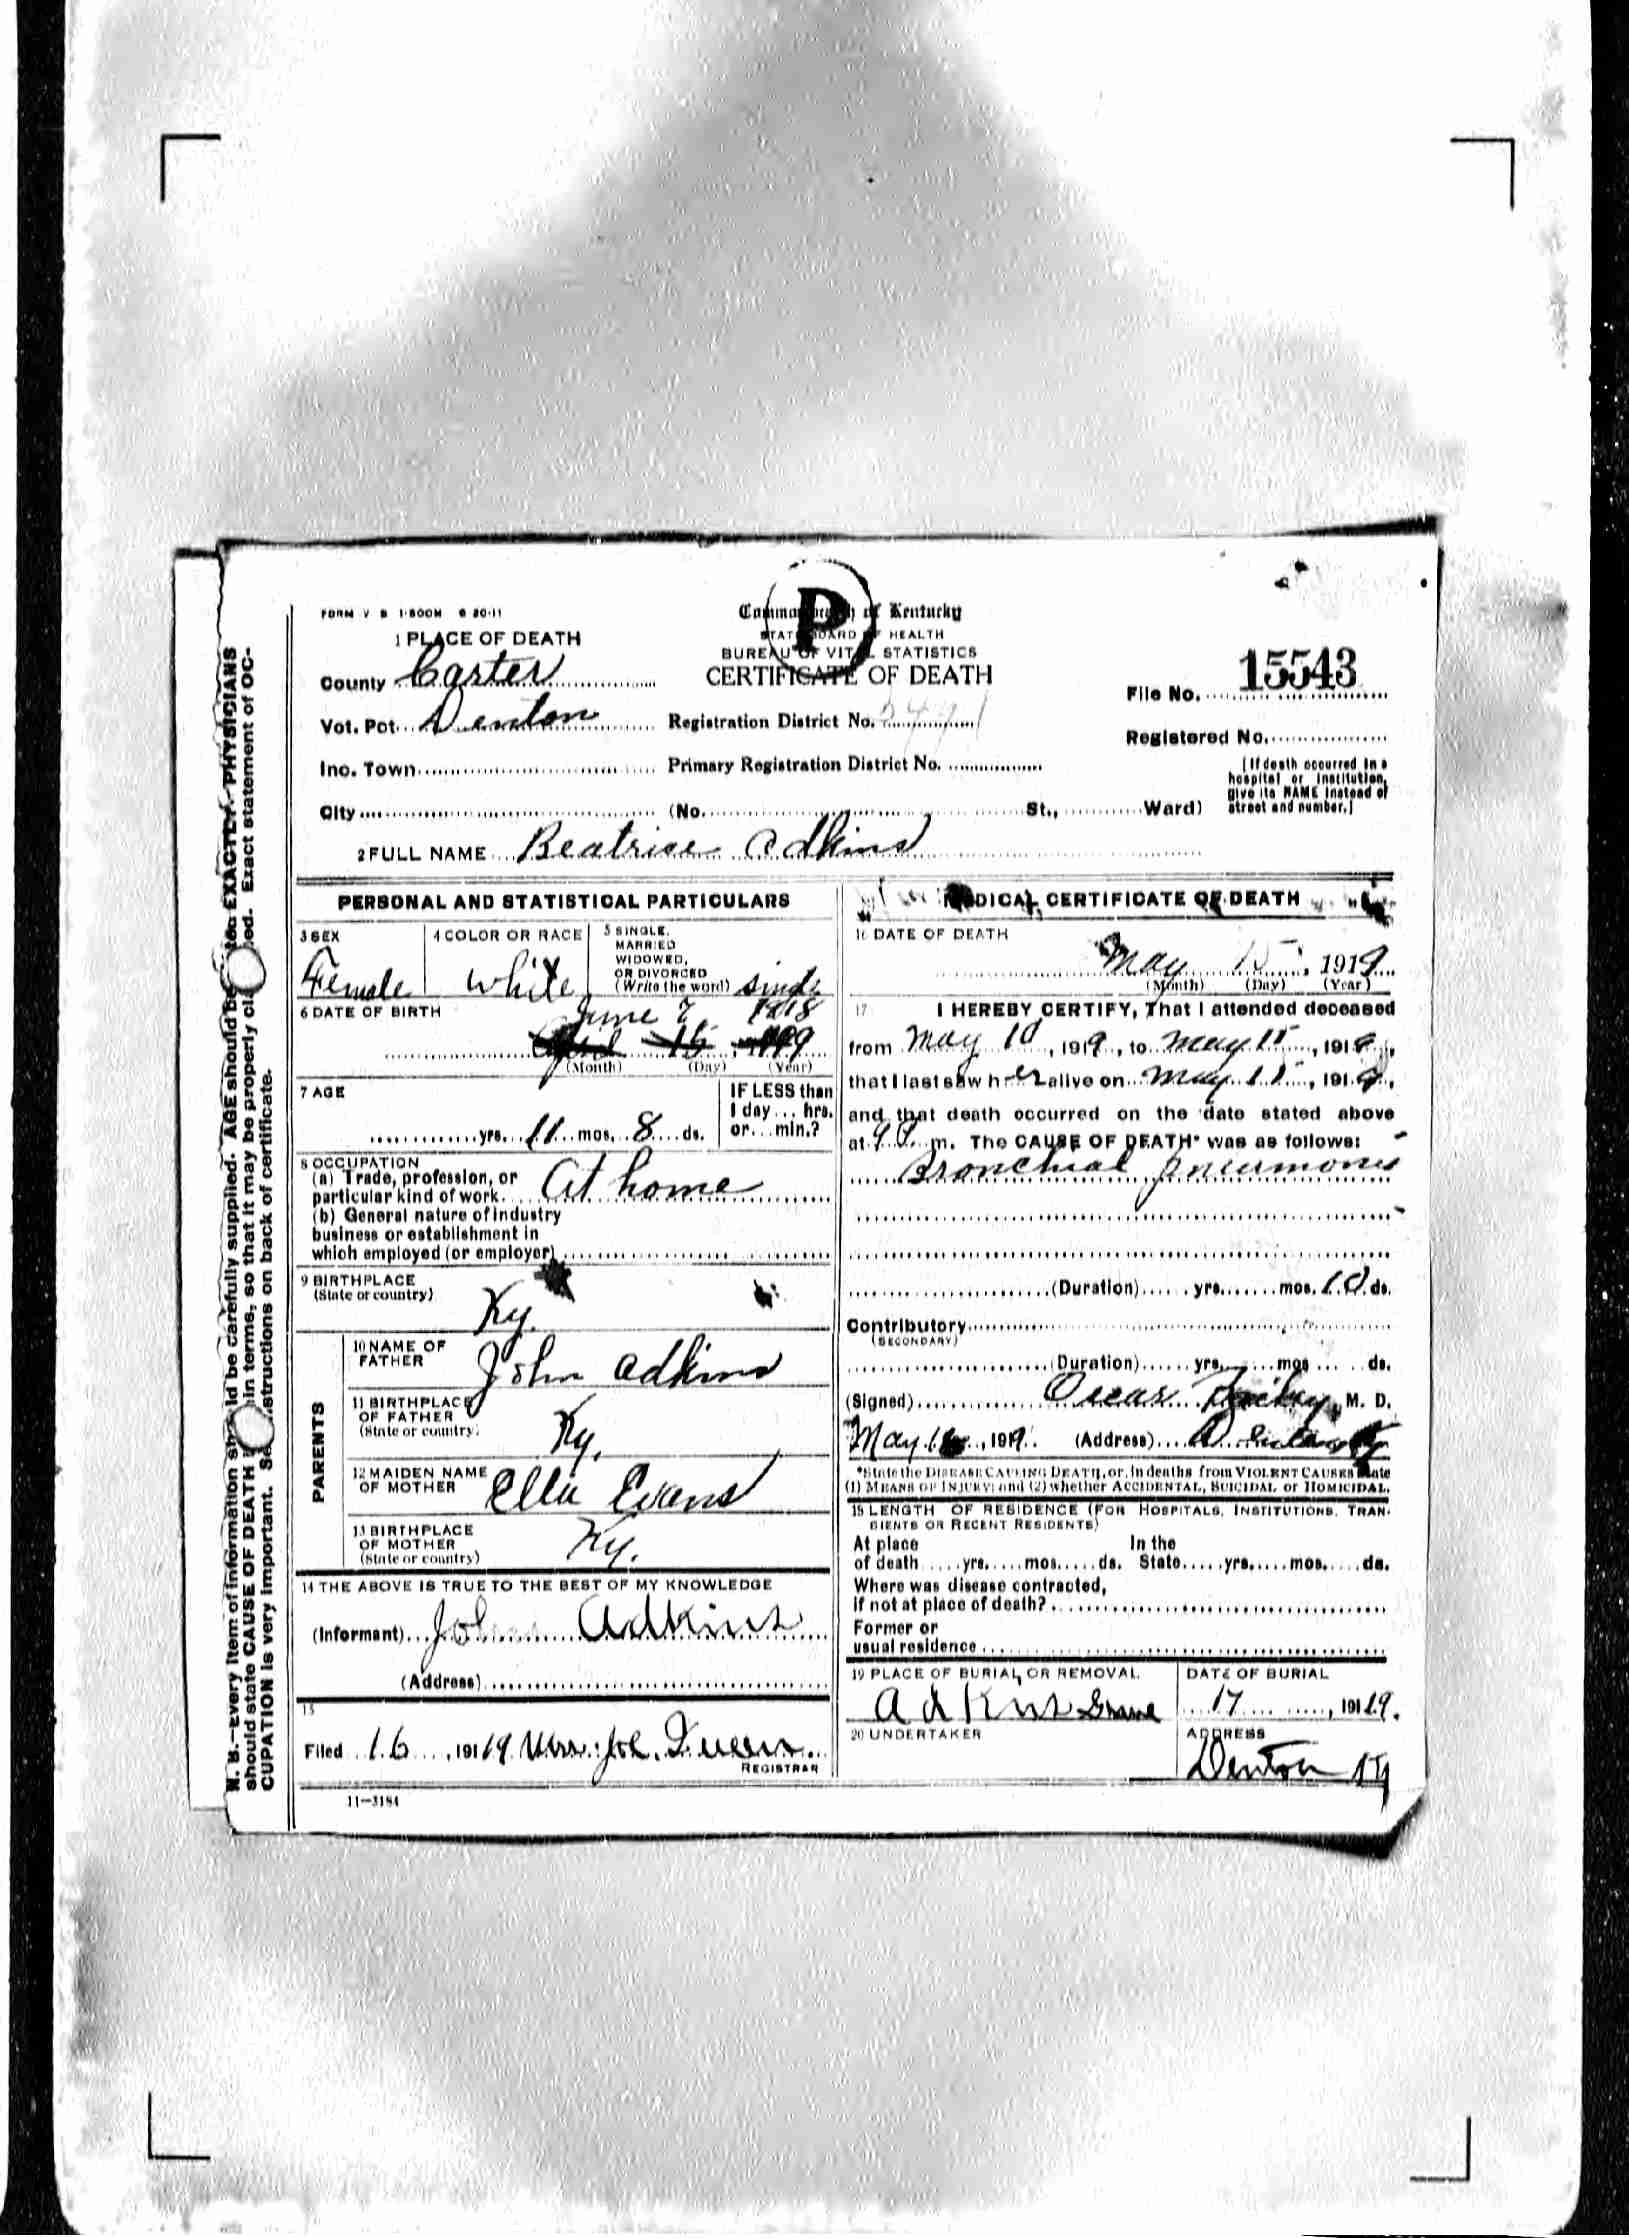 FORM V S 1-500M 6 20-11
Commonwealth of Kentucky
P
STATE BOARD OF HEALTH
BUREAU OF VITAL STATISTICS
CERTIFICATE OF DEATH
1 PLACE OF DEATH
County Carter
Vot. Pct. Denton Registration District No.
File No. 15543
Registered No.
Inc. Town Primary Registration District No.
City (No. St., Ward)
[If death occurred in a
hospital or institution,
give its NAME instead of
street and number.]
2 FULL NAME Beatrice Adkins
PERSONAL AND STATISTICAL PARTICULARS
3 SEX
Female
4 COLOR OR RACE
White
5 SINGLE,
MARRIED
WIDOWED,
OR DIVORCED
(Write the word) single
6 DATE OF BIRTH
June 7 1918
April 15
(Month) (Day) (Year)
7 AGE
yrs. 11 mos. 8 ds.
IF LESS than
1 day ... hrs.
or ... min.?
8 OCCUPATION
(a) Trade, profession, or
particular kind of work At home
(b) General nature of industry
business or establishment in
which employed (or employer)
9 BIRTHPLACE
(State or country)
Ky.
PARENTS
10 NAME OF
FATHER
John Adkins
11 BIRTHPLACE
OF FATHER
(State or country)
Ky.
12 MAIDEN NAME
OF MOTHER
Ella Evans
13 BIRTHPLACE
OF MOTHER
(State or country)
Ky.
14 THE ABOVE IS TRUE TO THE BEST OF MY KNOWLEDGE
(Informant) John Adkins
(Address)
15
Filed 16, 19119 Mrs. Joe
REGISTRAR
11-3184
MEDICAL CERTIFICATE OF DEATH
16 DATE OF DEATH
May 15, 1919
(Month) (Day) (Year)
17 I HEREBY CERTIFY, That I attended deceased
from May 10, 1919, to May 15, 1919,
that I last saw her alive on May 15, 1919,
and that death occurred on the date stated above
at m. The CAUSE OF DEATH* was as follows:
Bronchial pneumonia
(Duration) yrs. mos. 10 ds.
Contributory
(SECONDARY)
(Duration) yrs. mos. ds.
(Signed) Oscar M. D.
May 16, 1919. (Address) Denton Ky
*State the DISEASE CAUSING DEATH, or, in deaths from VIOLENT CAUSES state
(1) MEANS OF INJURY; and (2) whether ACCIDENTAL, SUICIDAL or HOMICIDAL.
18 LENGTH OF RESIDENCE (FOR HOSPITALS, INSTITUTIONS, TRAN-
SIENTS OR RECENT RESIDENTS)
At place In the
of death yrs. mos. ds. State yrs. mos. ds.
Where was disease contracted,
if not at place of death?
Former or
usual residence
19 PLACE OF BURIAL OR REMOVAL
Adkins Grave
DATE OF BURIAL
17, 19119.
20 UNDERTAKER
ADDRESS
Denton Ky
N. B.—Every item of information should be carefully supplied. AGE should be stated EXACTLY. PHYSICIANS
should state CAUSE OF DEATH in terms, so that it may be properly classified. Exact statement of OC-
CUPATION is very important. See instructions on back of certificate.